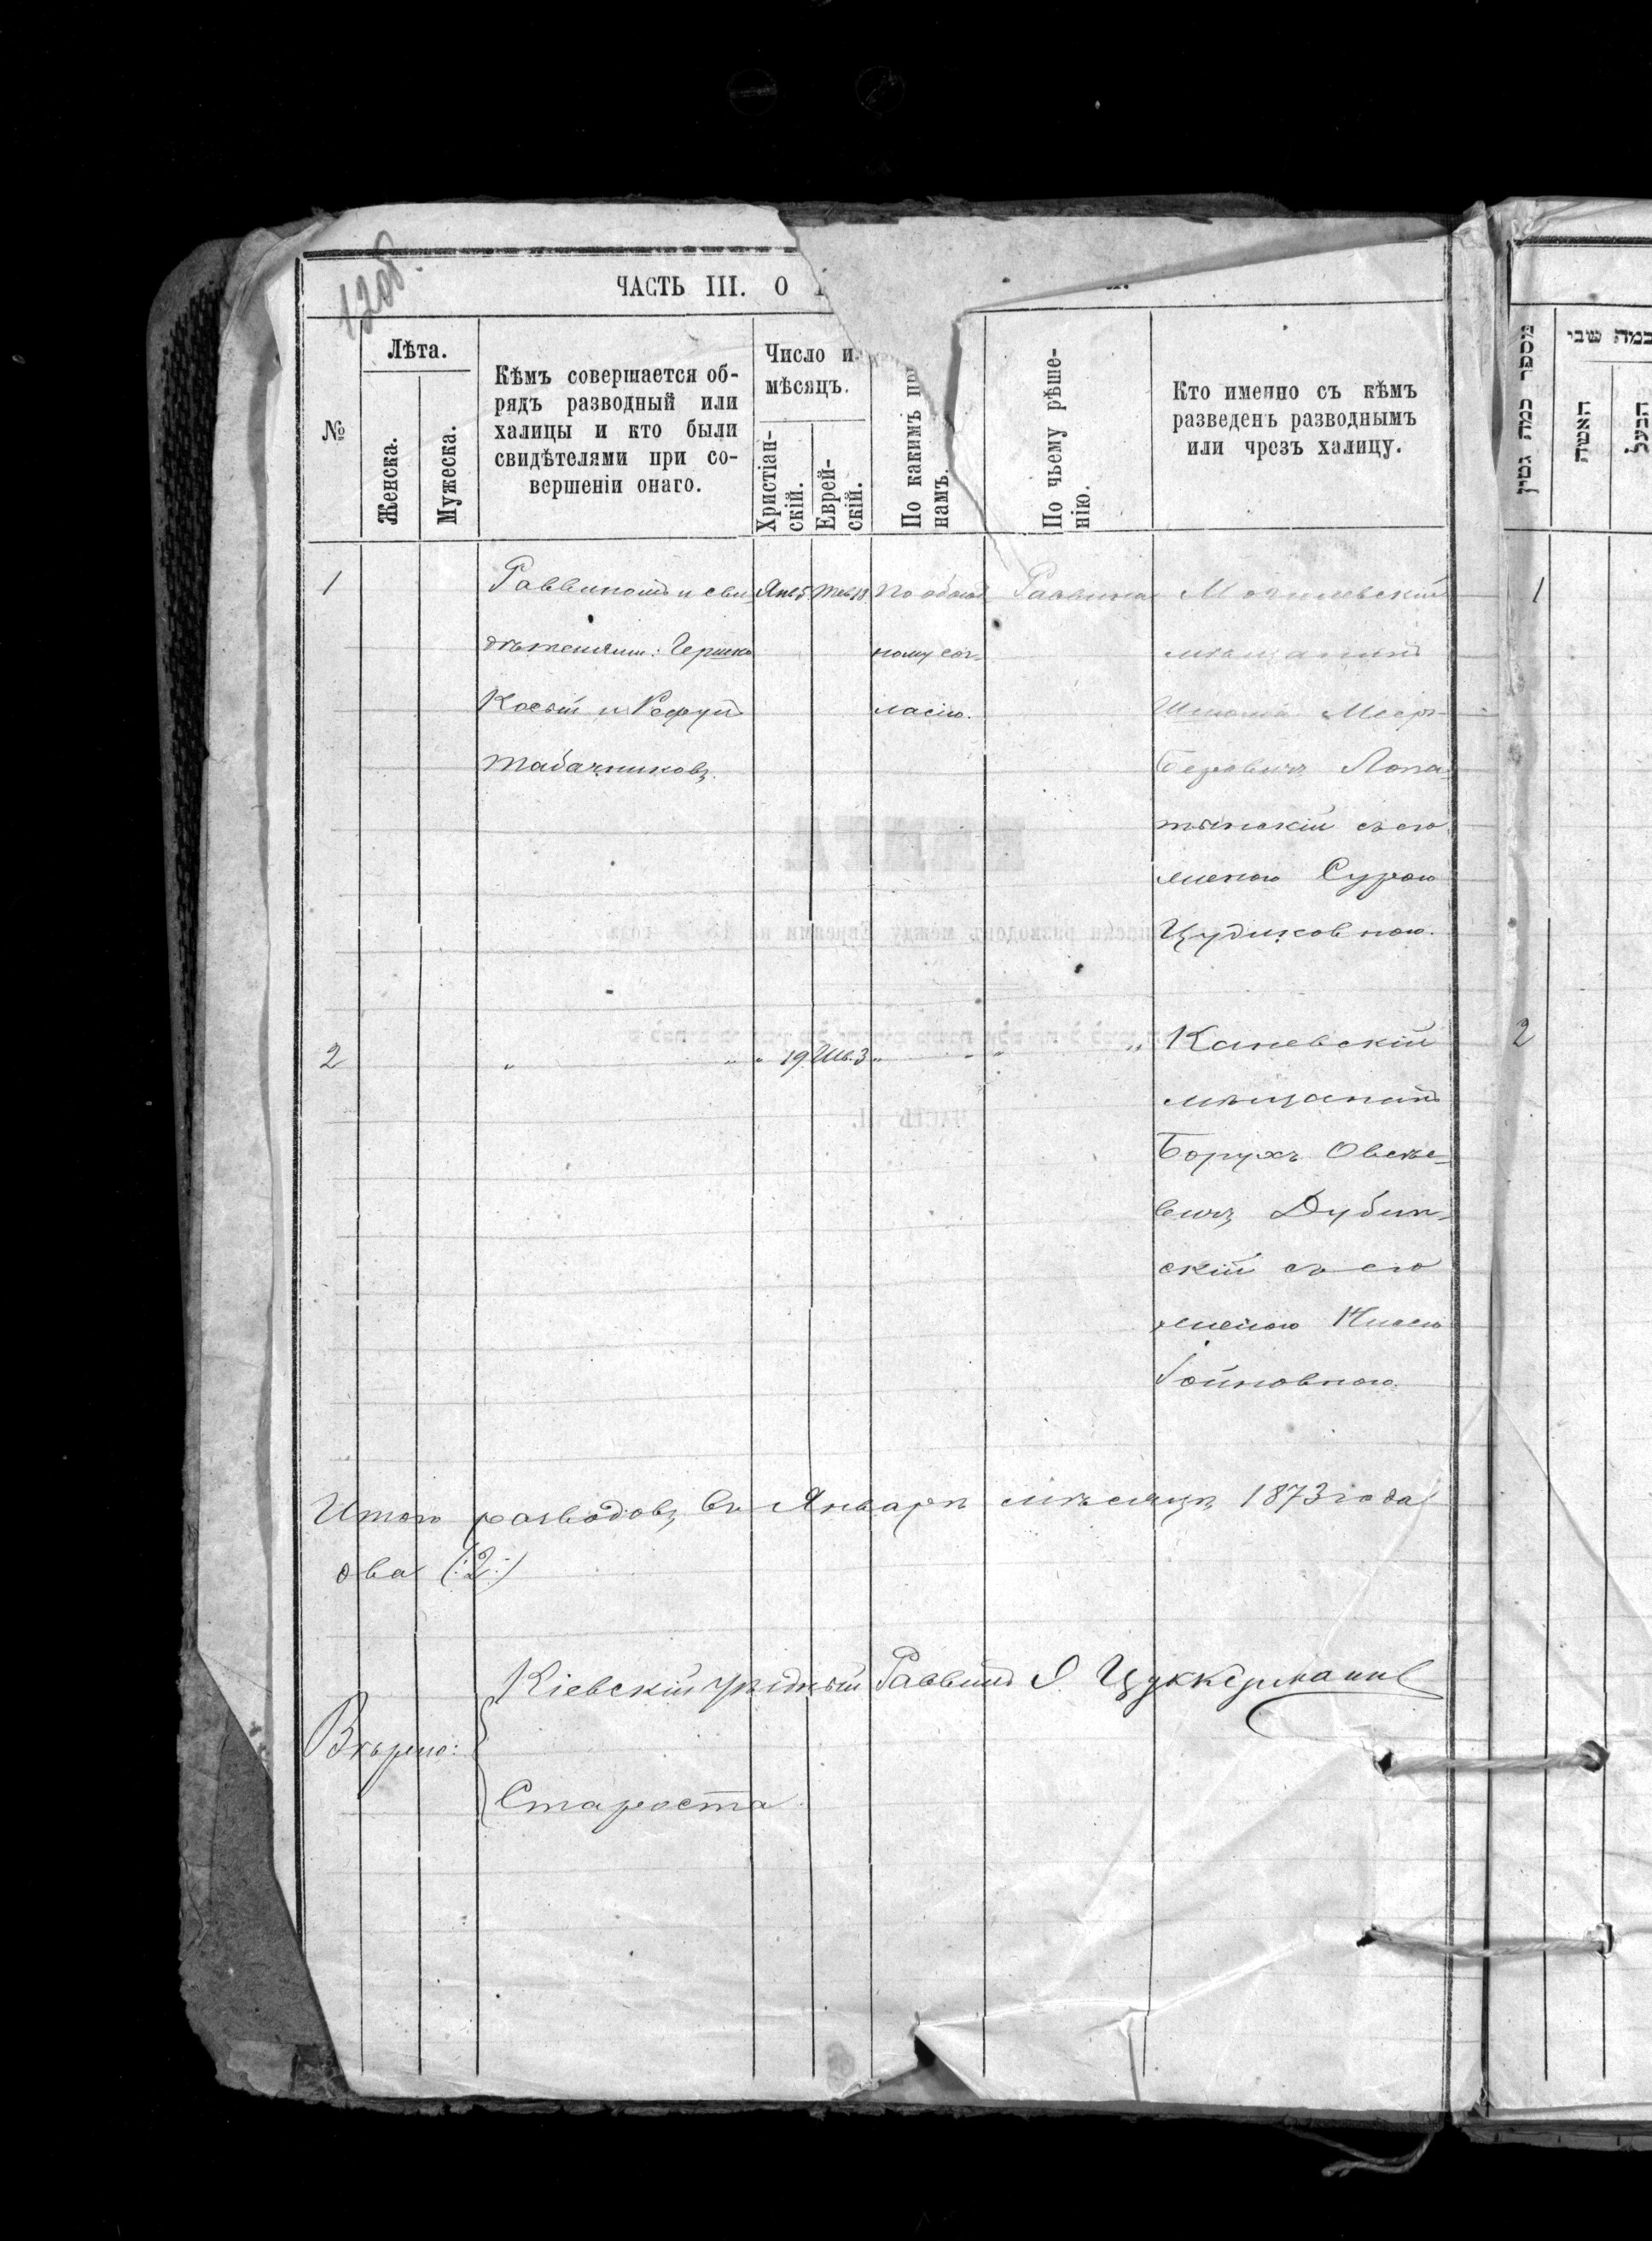 1208
ЧАСТЬ III. О
№
Лѣта.
Женска.
Мужеска.
Кѣмъ совершается об-
рядъ разводный или
халицы и кто были
свидѣтелями при со-
вершеніи онаго.
Число и
мѣсяцъ.
Христіан-
скій.
Еврей-
скій.
По какимъ
намъ.
По чьему рѣше-
нію.
Кто именно съ кѣмъ
разведенъ разводнымъ
или чрезъ халицу.
מספר כמה גטין
האשה
הבעל
1
Раввиномъ и сви-
дѣтелями: Гершко
Косый и
Табачниковъ.
Янв 5
Тев 18
По обоюд
ному сог-
ласію.
Раввина
Могилевскій
мѣщанинъ
Меер-
Беровичъ Лопа-
тынскій съ его
женою Сурою
Цудиковною.
1
2
" " " 19 Шв. 3 " " " "
Каневскій
мѣщанинъ
Борухъ Овсѣе-
вичъ Дубин-
скій съ его
женою
Гойновною.
2
Итого разводовъ въ Январѣ мѣсяцѣ 1873 года
два (:2:)
Вѣрно:
Кіевскій уѣздный Раввинъ Я Цуккерманъ
Староста